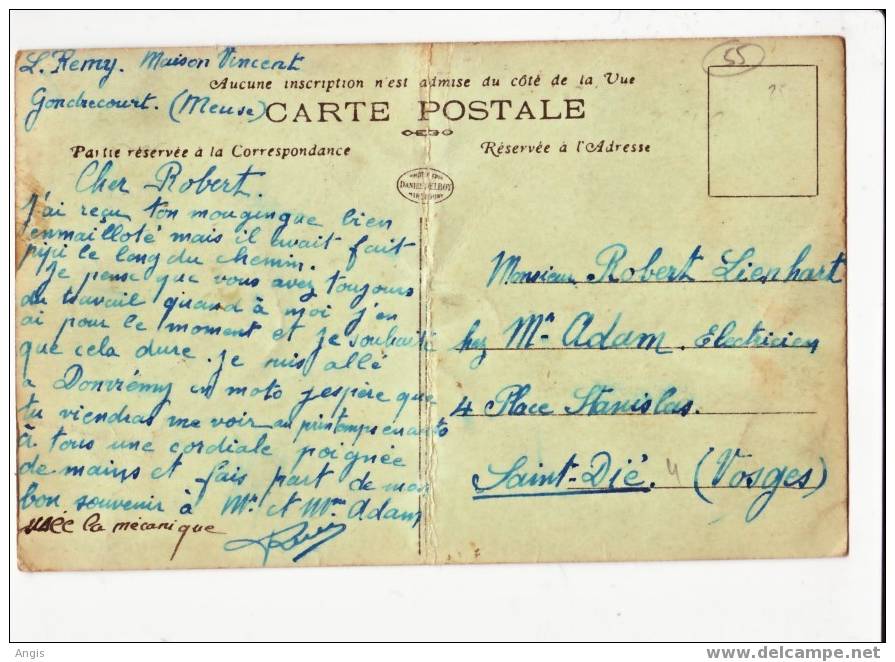 L. Remy. Maison Vincent
Gondrecourt. (Meuse)
55
Aucune inscription n'est admise du côté de la Vue
CARTE POSTALE
Partie réservée à la Correspondance
Réservée à l'Adresse
DANIEL DELBOY
Cher Robert.
J'ai reçu ton mouginque bien
enmailloté mais il avait fait
pipi le long du chemin.
Je pense que vous avez toujours
du travail quand à moi j'en
ai pour le moment et je souhaite
que cela dure. je suis allé
a Donrémy en moto j'espère que
tu viendras me voir au printemps en auto
à tous une cordiale poignée
de mains et fais part de mon
bon souvenir à Mr et Mme Adam
avec la mécanique
Monsieur Robert Lienhart
chez Mr ADAM. Electricien
4 Place Stanislas.
Saint-Dié. (Vosges)
4
Angis
www.delcampe.net